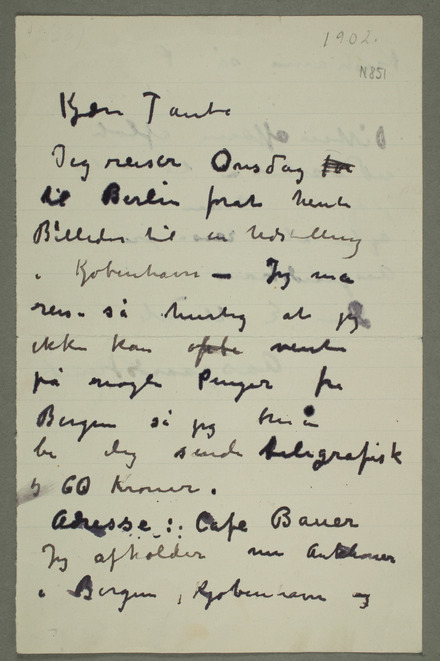 1902.
N 851
Kjære Tante
Jeg reiser Onsdag for
til Berlin forat hente
Billeder til en Udstilling
i Kjøbenhavn – Jeg må
reise så hurtig at jeg
ikke kan vente
på nogle Penger fra
Bergen så jeg må
be deg sende telegrafisk
60 Kroner.
Adresse: Café Bauer
Jeg afholder nu Auktioner
i Bergen, Kjøbenhavn og